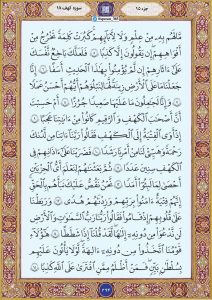 جزء ۱۵
سورة كهف ۱۸
مَّا لَهُم بِهِۦ مِنْ عِلْمٍ وَلَا لِأٓبَآئِهِمْ كَبُرَتْ كَلِمَةً تَخْرُجُ مِنْ
أَفْوَٰهِهِمْ إِن يَقُولُونَ إِلَّا كَذِبًا ۝٥ فَلَعَلَّكَ بَٰخِعٌ نَّفْسَكَ
عَلَىٰٓ ءَاثَٰرِهِمْ إِن لَّمْ يُؤْمِنُوا۟ بِهَٰذَا ٱلْحَدِيثِ أَسَفًا ۝٦ إِنَّا
جَعَلْنَا مَا عَلَى ٱلْأَرْضِ زِينَةً لَّهَا لِنَبْلُوَهُمْ أَيُّهُمْ أَحْسَنُ عَمَلًا
۝٧ وَإِنَّا لَجَٰعِلُونَ مَا عَلَيْهَا صَعِيدًا جُرُزًا ۝٨ أَمْ حَسِبْتَ
أَنَّ أَصْحَٰبَ ٱلْكَهْفِ وَٱلرَّقِيمِ كَانُوا۟ مِنْ ءَايَٰتِنَا عَجَبًا ۝٩
إِذْ أَوَى ٱلْفِتْيَةُ إِلَى ٱلْكَهْفِ فَقَالُوا۟ رَبَّنَآ ءَاتِنَا مِن لَّدُنكَ
رَحْمَةً وَهَيِّئْ لَنَا مِنْ أَمْرِنَا رَشَدًا ۝١٠ فَضَرَبْنَا عَلَىٰٓ ءَاذَانِهِمْ فِى
ٱلْكَهْفِ سِنِينَ عَدَدًا ۝١١ ثُمَّ بَعَثْنَٰهُمْ لِنَعْلَمَ أَىُّ ٱلْحِزْبَيْنِ
أَحْصَىٰ لِمَا لَبِثُوٓا۟ أَمَدًا ۝١٢ نَّحْنُ نَقُصُّ عَلَيْكَ نَبَأَهُم بِٱلْحَقِّ
إِنَّهُمْ فِتْيَةٌ ءَامَنُوا۟ بِرَبِّهِمْ وَزِدْنَٰهُمْ هُدًى ۝١٣ وَرَبَطْنَا
عَلَىٰ قُلُوبِهِمْ إِذْ قَامُوا۟ فَقَالُوا۟ رَبُّنَا رَبُّ ٱلسَّمَٰوَٰتِ وَٱلْأَرْضِ
لَن نَّدْعُوَا۟ مِن دُونِهِۦٓ إِلَٰهًا لَّقَدْ قُلْنَآ إِذًا شَطَطًا ۝١٤ هَٰٓؤُلَآءِ
قَوْمُنَا ٱتَّخَذُوا۟ مِن دُونِهِۦٓ ءَالِهَةً لَّوْلَا يَأْتُونَ عَلَيْهِم
بِسُلْطَٰنٍۭ بَيِّنٍ فَمَنْ أَظْلَمُ مِمَّنِ ٱفْتَرَىٰ عَلَى ٱللَّهِ كَذِبًا ۝١٥
۲۹۴